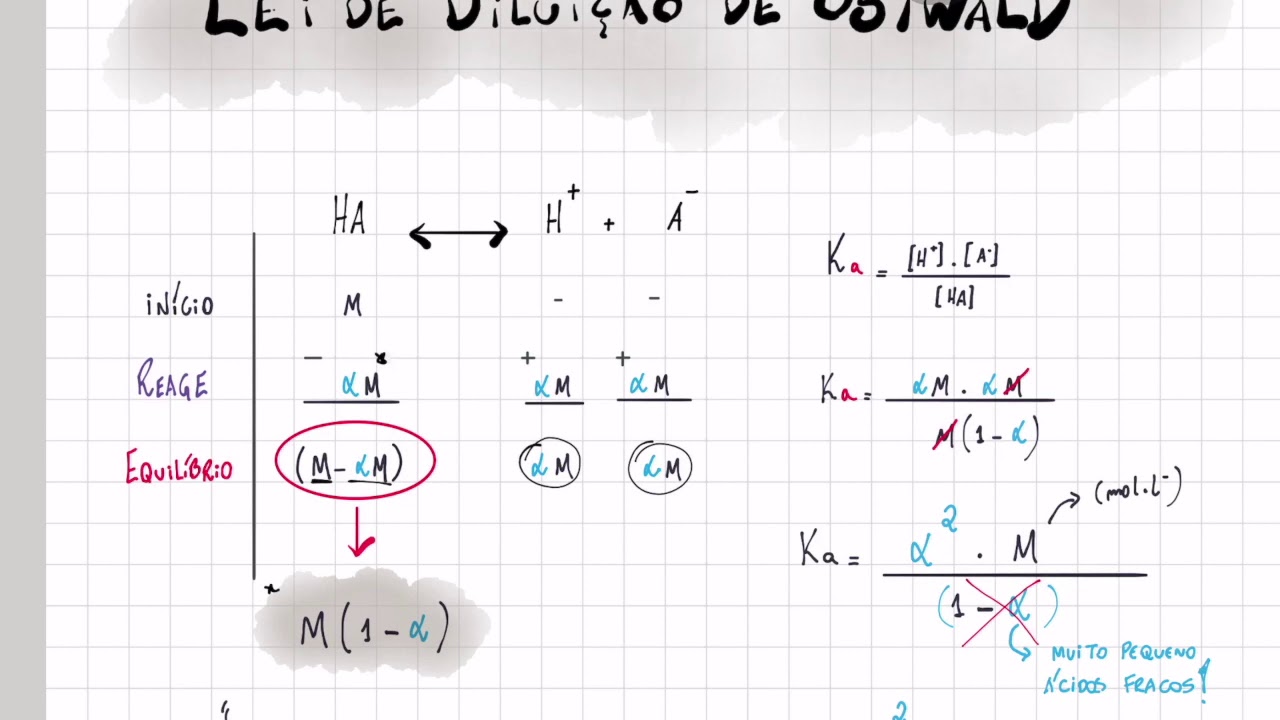 LEI DE DILUIÇÃO DE OSTWALD
HA ⟷ H⁺ + A⁻
INÍCIO M - -
REAGE − αM* + αM + αM
EQUILÍBRIO (M - αM) αM αM
* M(1 - α)
Ka = [H⁺].[A⁻] / [HA]
Ka = αM . αM / M(1 - α)
Ka = α² . M / (1 - α)
(mol.L⁻)
MUITO PEQUENO
ÁCIDOS FRACOS!
2